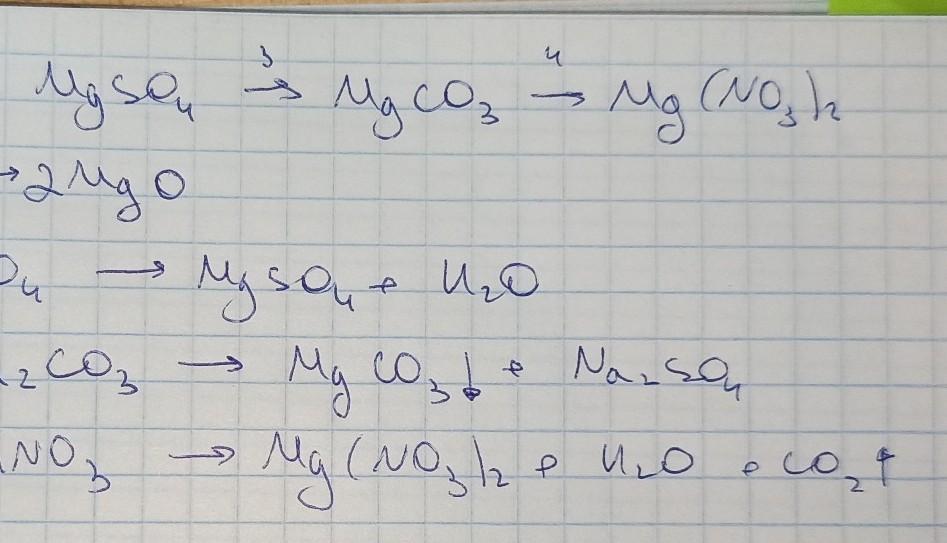 MgSO₄ →³ MgCO₃ →⁴ Mg(NO₃)₂
→ 2MgO
O₄ → MgSO₄ + H₂O
₂CO₃ → MgCO₃↓ + Na₂SO₄
NO₃ → Mg(NO₃)₂ + H₂O + CO₂↑